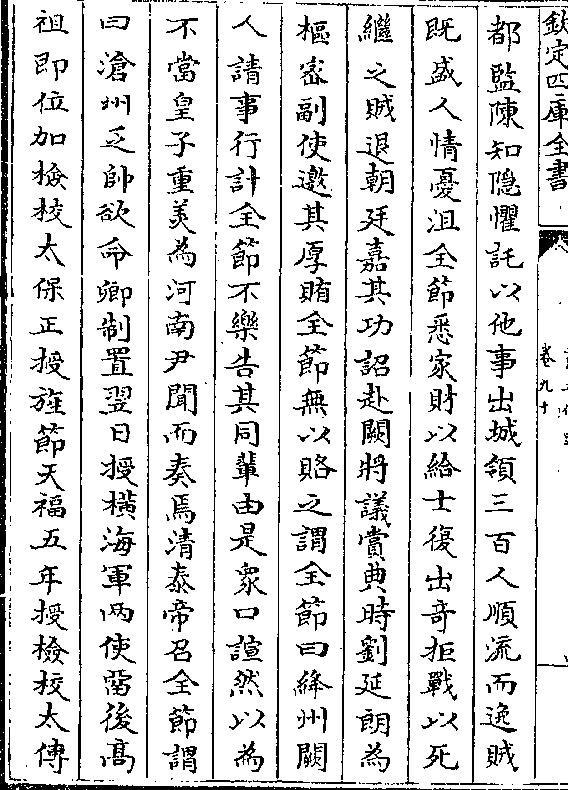 欽定四庫全書
卷九十
都監陳知隱懼託以他事出城領三百人順流而逸賊
既盛人情憂沮全節悉家財以給士復出奇拒戰以死
繼之賊退朝廷嘉其功詔赴闕將議賞典時劉延朗為
樞宻副使邀其厚賄全節無以賂之謂全節曰絳州闕
人請事行計全節不樂告其同輩由是衆口諠然以為
不當皇子重美為河南尹聞而奏焉清泰帝召全節謂
曰滄州乏帥欲命卿制置翌日授橫海軍兩使留後髙
祖即位加檢校太保正授旌節天福五年授檢校太傅